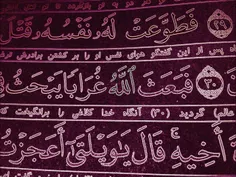 ٢٩ فَطَوَّعَتْ لَهُ نَفْسُهُ قَتْلَ
پس از این گفتگو هوای نفس او را بر کشتن برادرش
٣٠ فَبَعَثَ اللَّهُ غُرَابًا يَبْحَثُ
عالم) گردید (۳۰) آنگاه خدا کلاغی را برانگیخت که
أَخِيهِ قَالَ يَٰوَيْلَتَىٰٓ أَعَجَزْتُ